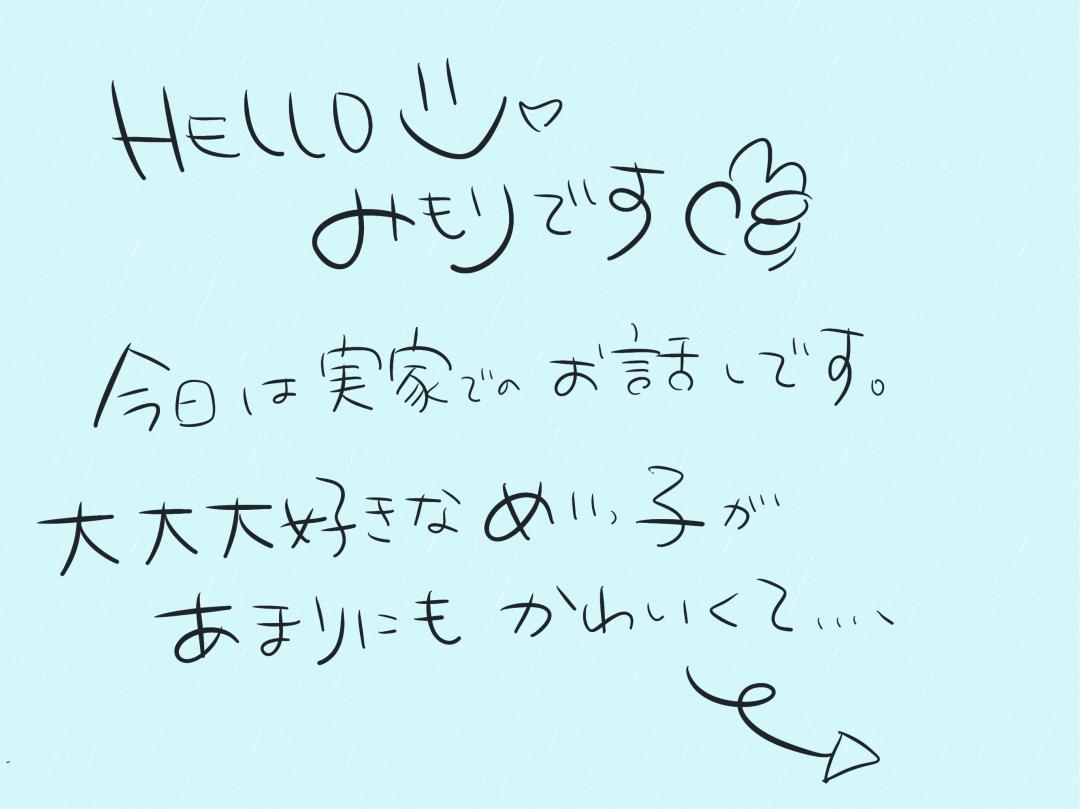 HELLO
みもりです
今日は実家でのお話しです。
大大大好きなめいっ子が
あまりにもかわいくて....、